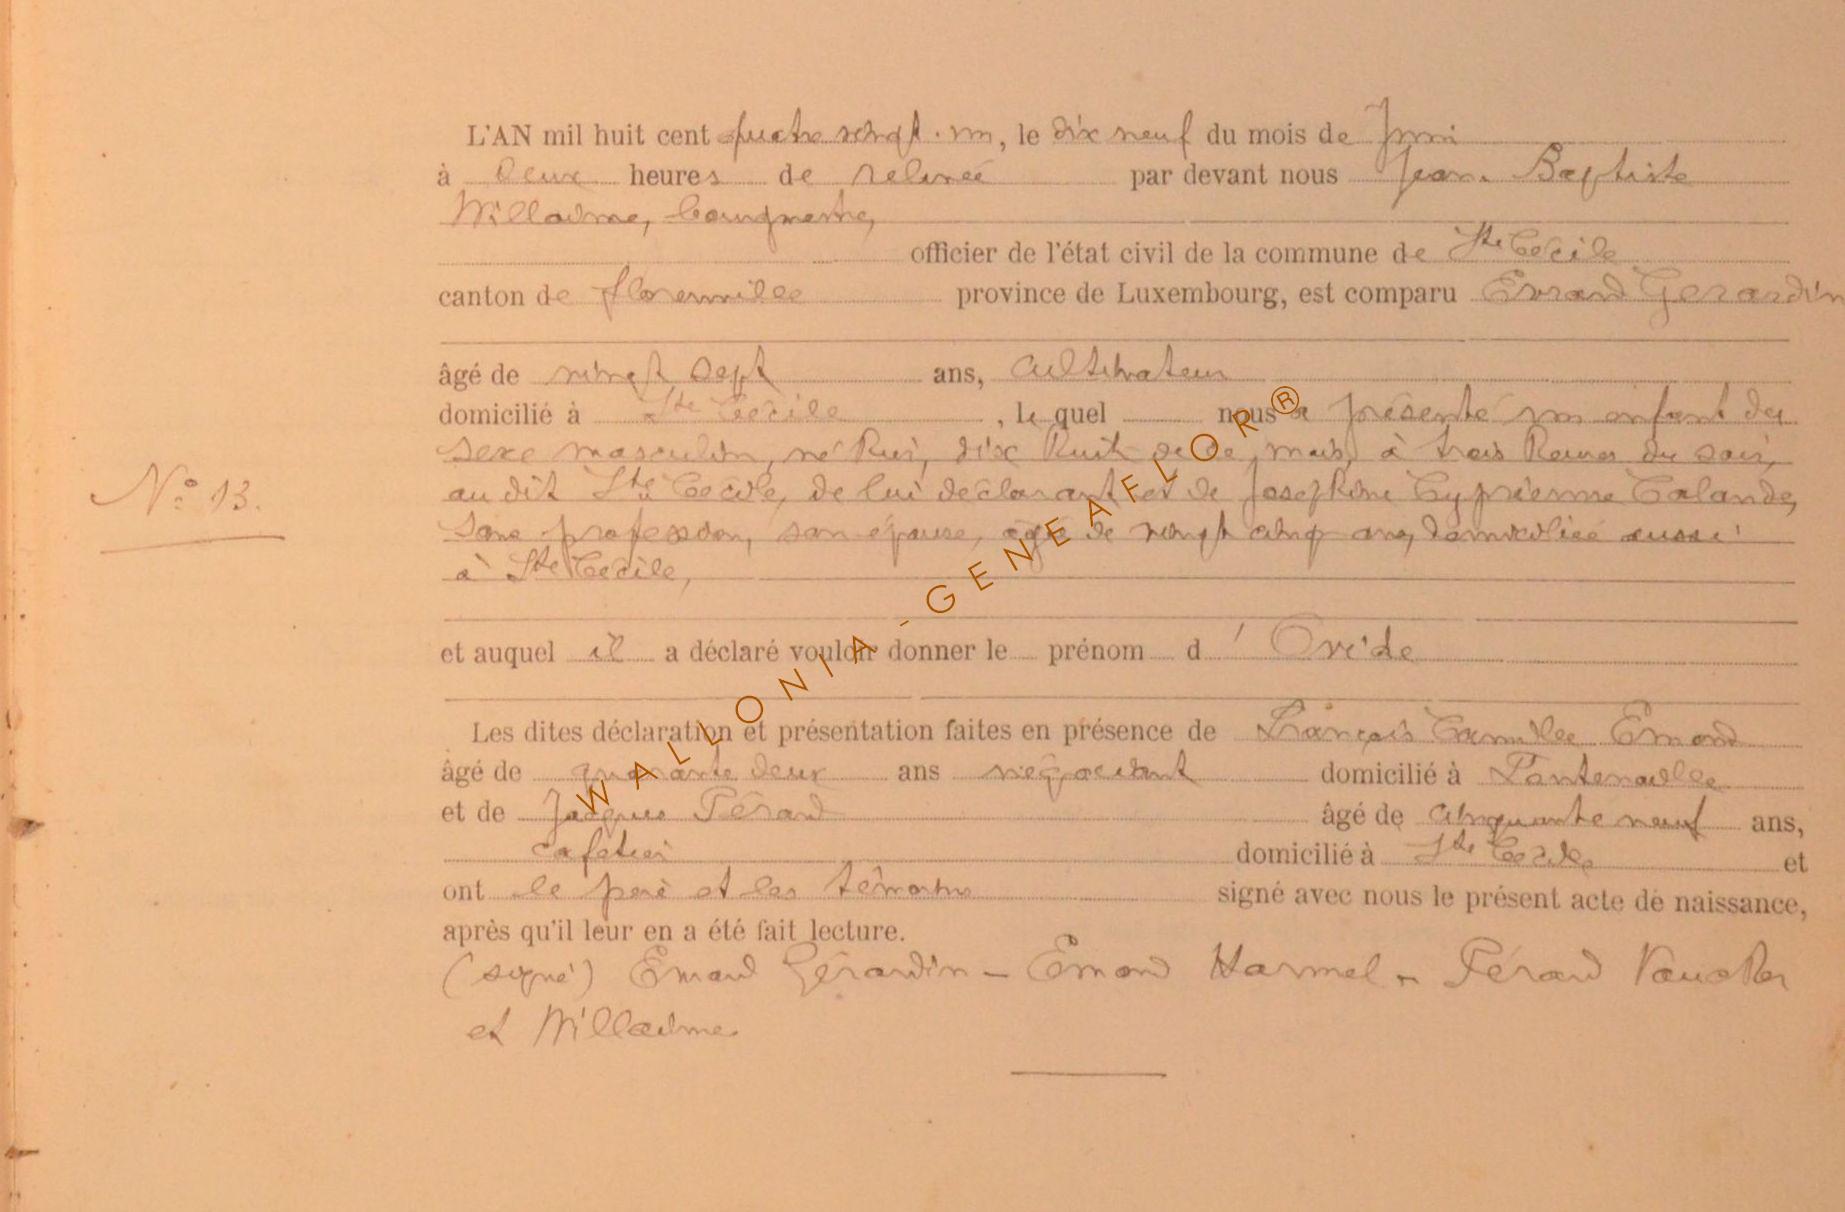 L'AN mil huit cent quatre vingt-un, le dix neuf du mois de Juin
à deux heures de relevée par devant nous Jean-Baptiste
Willaime, bourgmestre,
officier de l'état civil de la commune de Ste Cécile
canton de florenville province de Luxembourg, est comparu Evrard Gerardin
âgé de vingt sept ans, cultivateur
domicilié à Ste Cécile, le quel nous a présenté un enfant du
sexe masculin, né hier, dix huit de ce mois, à trois heures du soir,
au dit Ste Cécile, de lui déclarant et de Joséphine Cyprienne Calande,
sans profession, son épouse, agée de vingt cinq ans, domiciliée aussi
à Ste Cécile,
N° 13.
et auquel il a déclaré vouloir donner le prénom d' Ovide
Les dites déclaration et présentation faites en présence de François Camille Emond
âgé de quarante deux ans négociant domicilié à
et de Jacques Pérard âgé de cinquante neuf ans,
cafetier domicilié à Ste Cécile et
ont le père et les témoins signé avec nous le présent acte de naissance,
après qu'il leur en a été fait lecture.
(signé) Evrard Gérardin - Emond Harmel - Pérard
et Willaime
WALLONIA - GENEAFLOR®